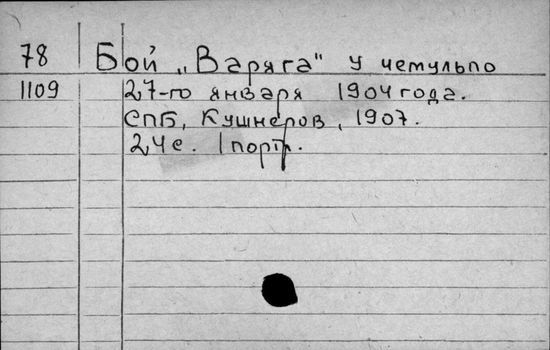 78 Бой „Варяга" у чемульпо
1109 27-го января 1904 года.
СПБ, Кушнеров, 1907.
24 с. 1 портр.